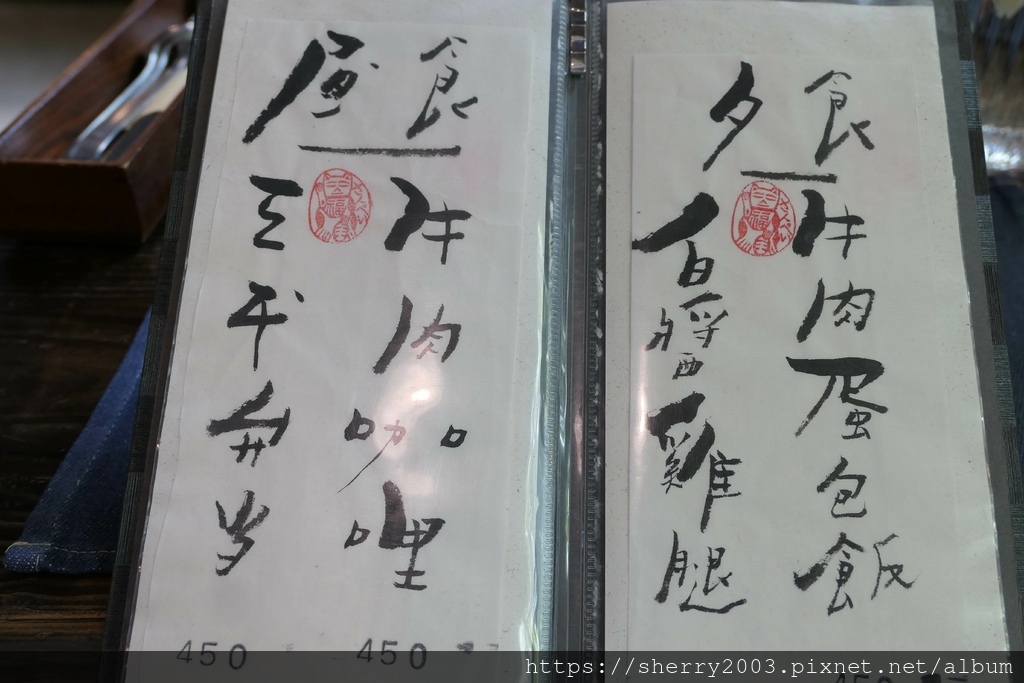 昼食
牛肉咖哩
450
450
夕食
牛肉蛋包飯
白醬雞腿
https://sherry2003.pixnet.net/album